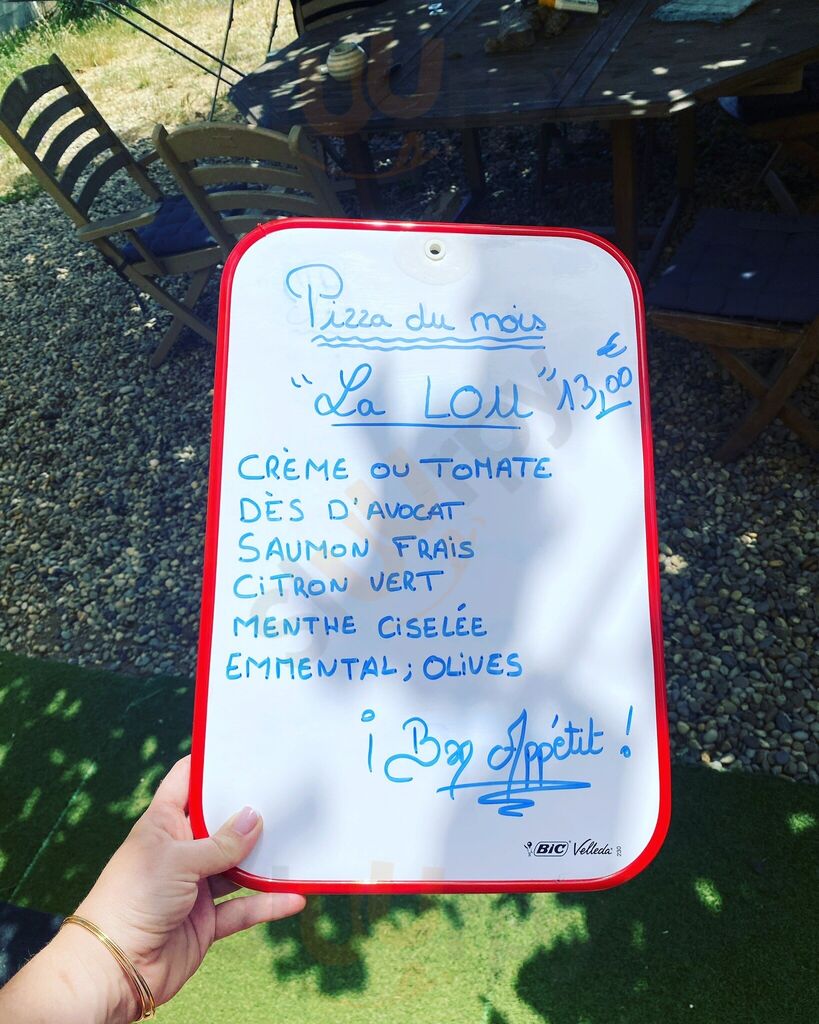 Pizza du mois
"La LOU" 13,00 €
CRÈME OU TOMATE
DÈS D'AVOCAT
SAUMON FRAIS
CITRON VERT
MENTHE CISELÉE
EMMENTAL ; OLIVES
¡ Bon Appétit !
BIC Velleda 230